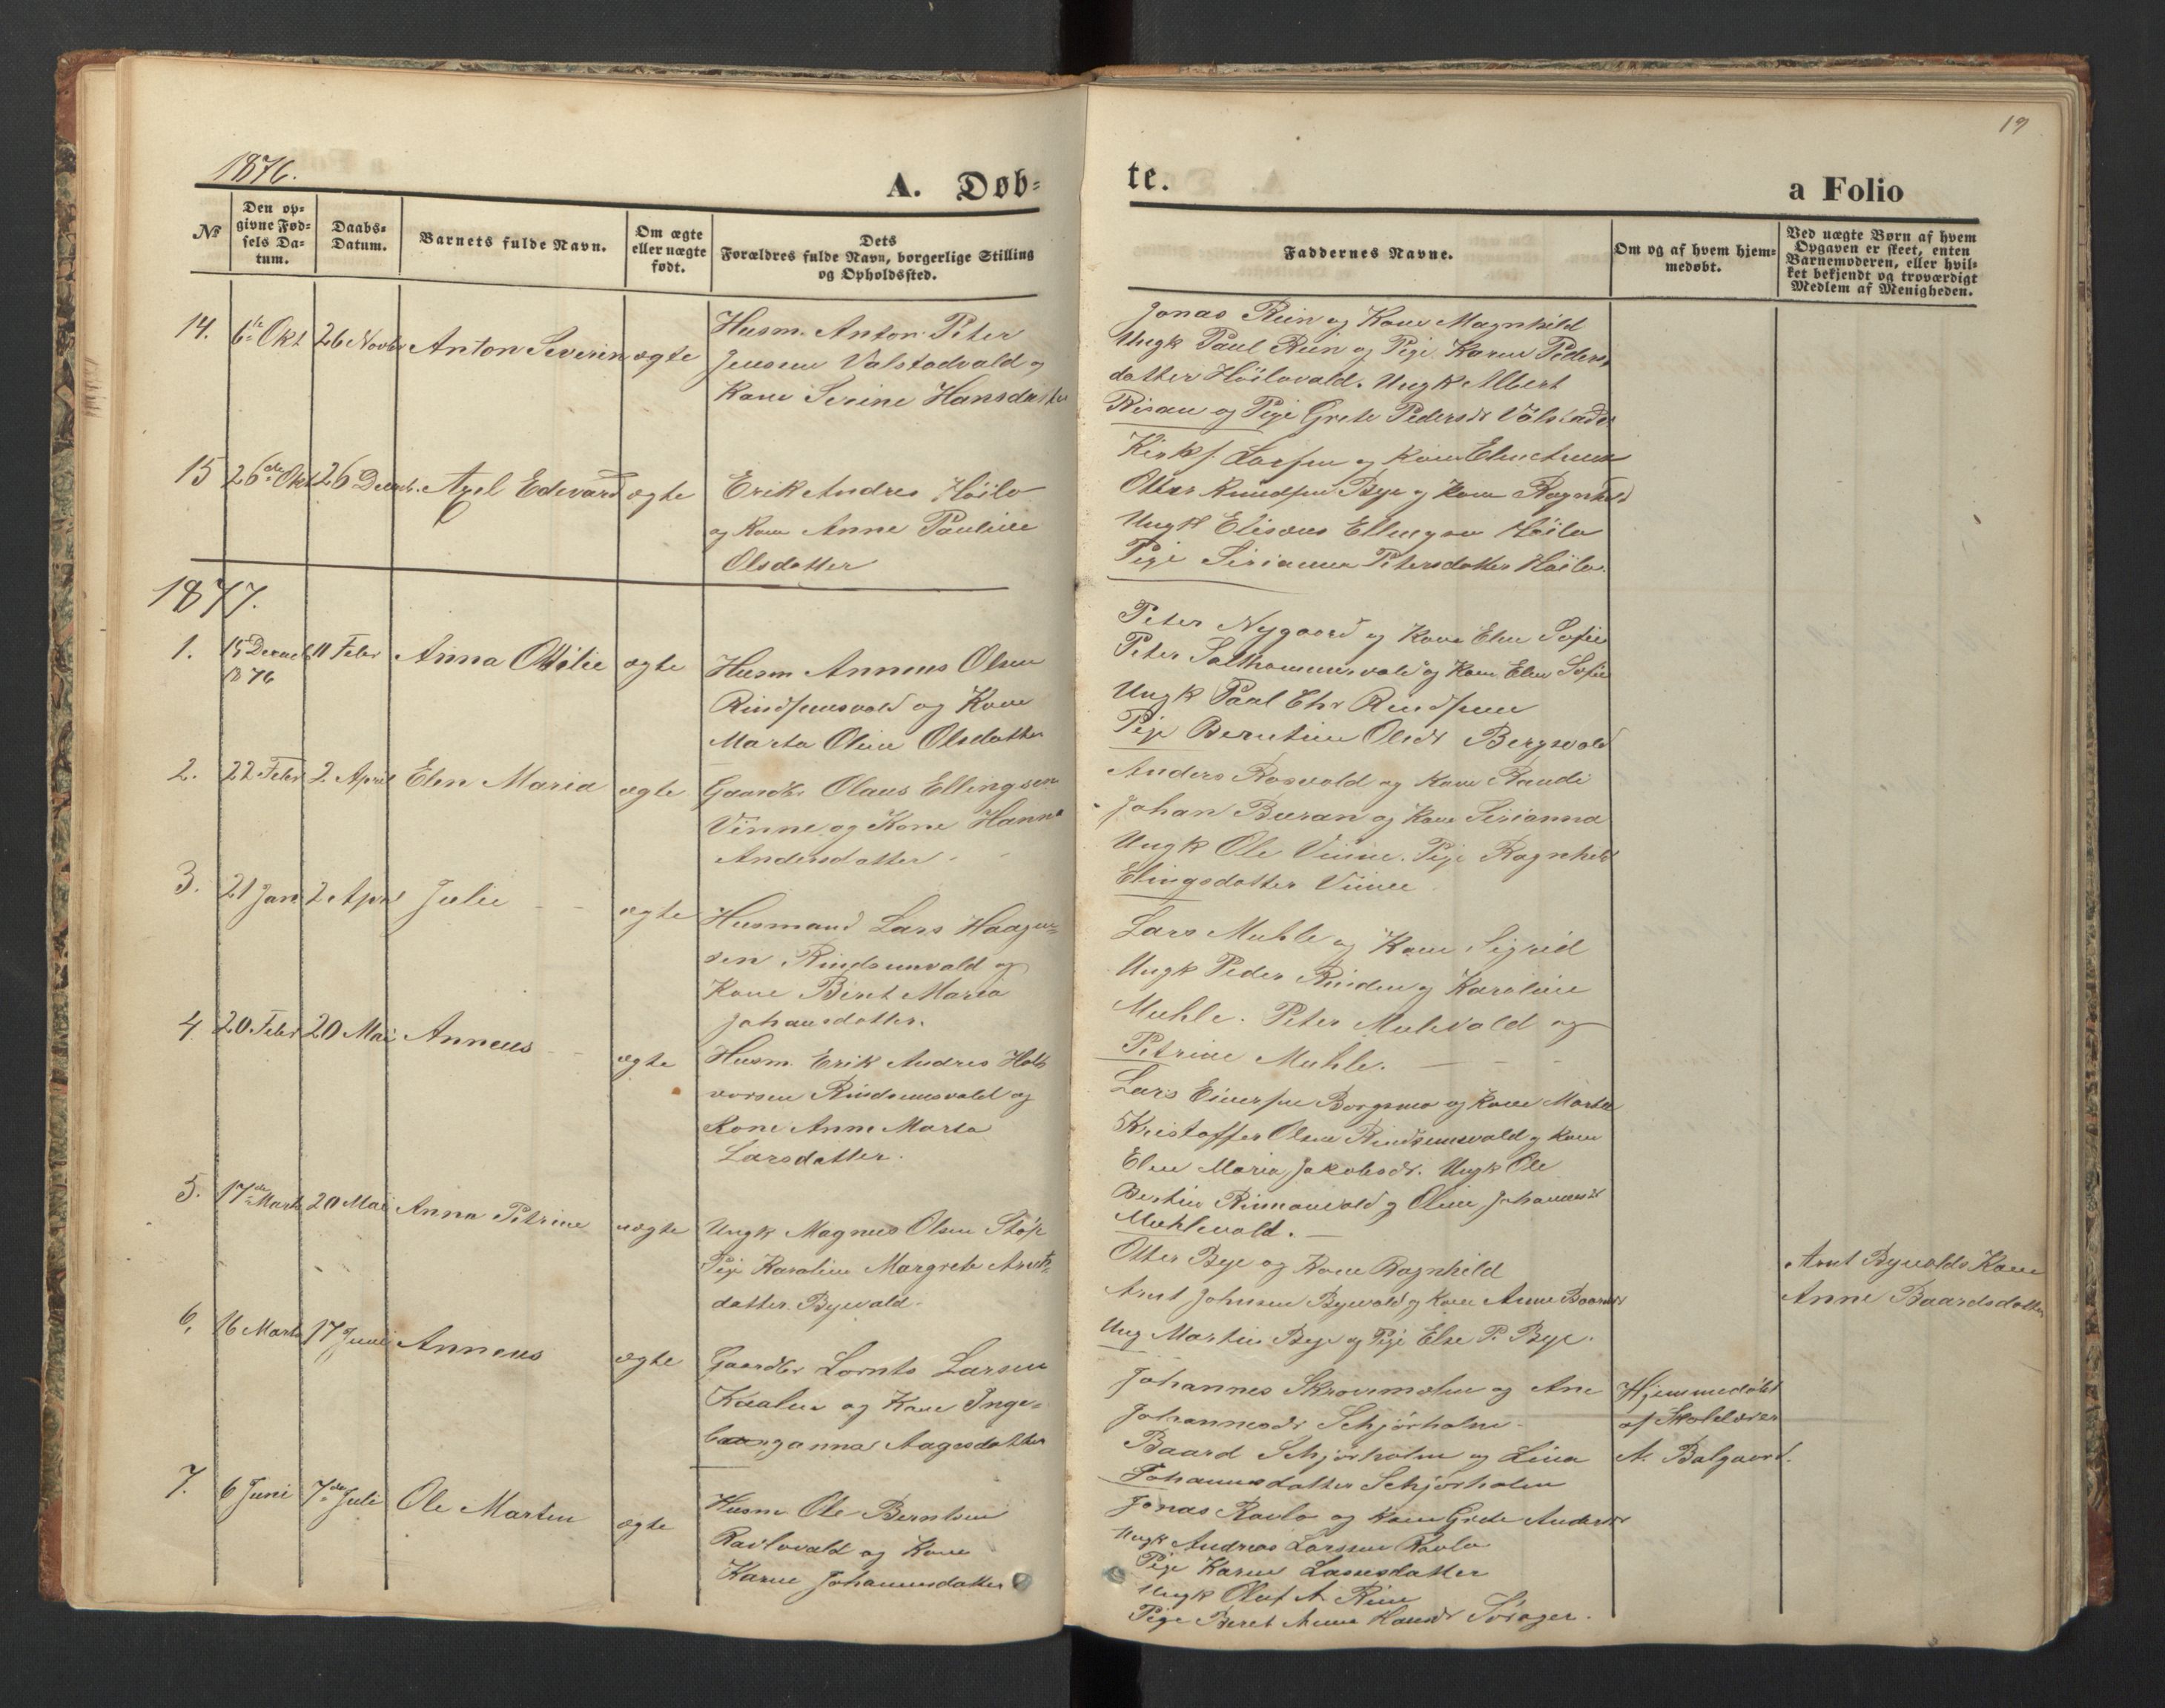 19
1876.
A. Døb=
te.
a Folio
No
Den op=
givne Fød=
sels Da=
tum.
Daabs=
Datum.
Barnets fulde Navn.
Om ægte
eller uægte
født.
Dets
Forældres fulde Navn, borgerlige Stilling
og Opholdssted.
Faddernes Navne.
Om og af hvem hjem=
medøbt.
Ved uægte Børn af hvem
Opgaven er skeet, enten
Barnemoderen, eller hvil=
ket bekjendt og troværdigt
Medlem af Menigheden.
14. 6te Okt 26 Novbr Anton Severin ægte
Husm. Anton Peter
Jensen Valstadvald og
Kone Serine Hansdatter
Jonas Rein og Kone Magnhild
Ungk Paul Rein og Pige Karen Peders
datter Höilovald. Ungk Albert
Risan og Pige Grete Pedersdr
15 26de Okt 26 Decbr. Axel Edevard ægte
Erik Andres Höilo
og Kone Anne Pauline
Olsdatter
Kirks. og Kone
Otter Knudsen Bye og Kone Ragnhild
Ungk Elisæus Ellingsen Höilo
Pige Sirianna Petersdatter Höilo.
1877.
1. 15 Decmb 1876 11 Febr Anna Otilie ægte
Husm Annæus Olsen
Rindsemsvald og Kone
Marta Oline Olsdatter
Peter Nygaard og Kone Elen Sofie
Peter Salthammersvald og Kone Elen Sofie
Ungk Paul Chr Rindsem
Pige Berntine Olsdr Bergsvald
2. 22 Febr 2 April Elen Maria ægte
Gaardbr Olaus Ellingsen
Vinne og Kone Hanna
Andersdatter
Anders Rosvold og Kone Randi
Johan Buran og Kone Sirianna
Ungk Ole Vinne. Pige Ragnhild
Elingsdatter Vinne
3. 21 Jan 2 Apr Julie ægte
Husmand Lars Haagen=
sen Rindsemvald og
Kone Beret Maria
Johansdatter.
Lars Muhle og Kone Sigrid
Ungk Peder Rinden og Karoline
Muhle. Peter Muhlvald og
Petrine Muhle.
4. 20 Febr 20 Mai Annæus ægte
Husm. Erik Andres Hal
vorsen Rindsemsvald og
Kone Anne Marta
Larsdatter.
Lars Einersen Borgsmo og Kone Marta
Kristoffer Olsen Rindsemsvald og Kone
Elen Maria Jakobsdr. Ungk Ole
og Oline Johannesdr
Muhlevald.
5. 17de Marts 20 Mai Anna Petrine uægte
Ungk Magnus Olsen Støp
Pige Karoline Margrete Arnts=
datter Byevald.
Otter Bye og Kone Ragnhild
Arnt Johnsen Byevald og Kone Anne Baardsdr
Ung Martin Bye og Pige Else P. Bye.
Arnt Byevalds Kone
Anne Baardsdatter
6. 16 Marts 17 Juni Annæus ægte
Gaardbr Lornts Larsen
og Kone Inge=
anna Aagesdatter
Johannes og Ane
Johannesdr Schjørholm.
Baard Schjørholm og Lina
Johannesdatter Schjørholm
Hjemmedøbt
af Skolelærer
A. Balgaard.
7. 6 Juni 7de Juli Ole Martin ægte
Husm Ole Berntsen
Ravlovald og Kone
Karen Johannesdatter
Jonas Ravlo og Kone Grete Andersdr
Ungk Andreas Larssen Ravlo
Pige Karen Larsdatter
Ungk Oluf A. Rein
Pige Beret Anna Hansdr